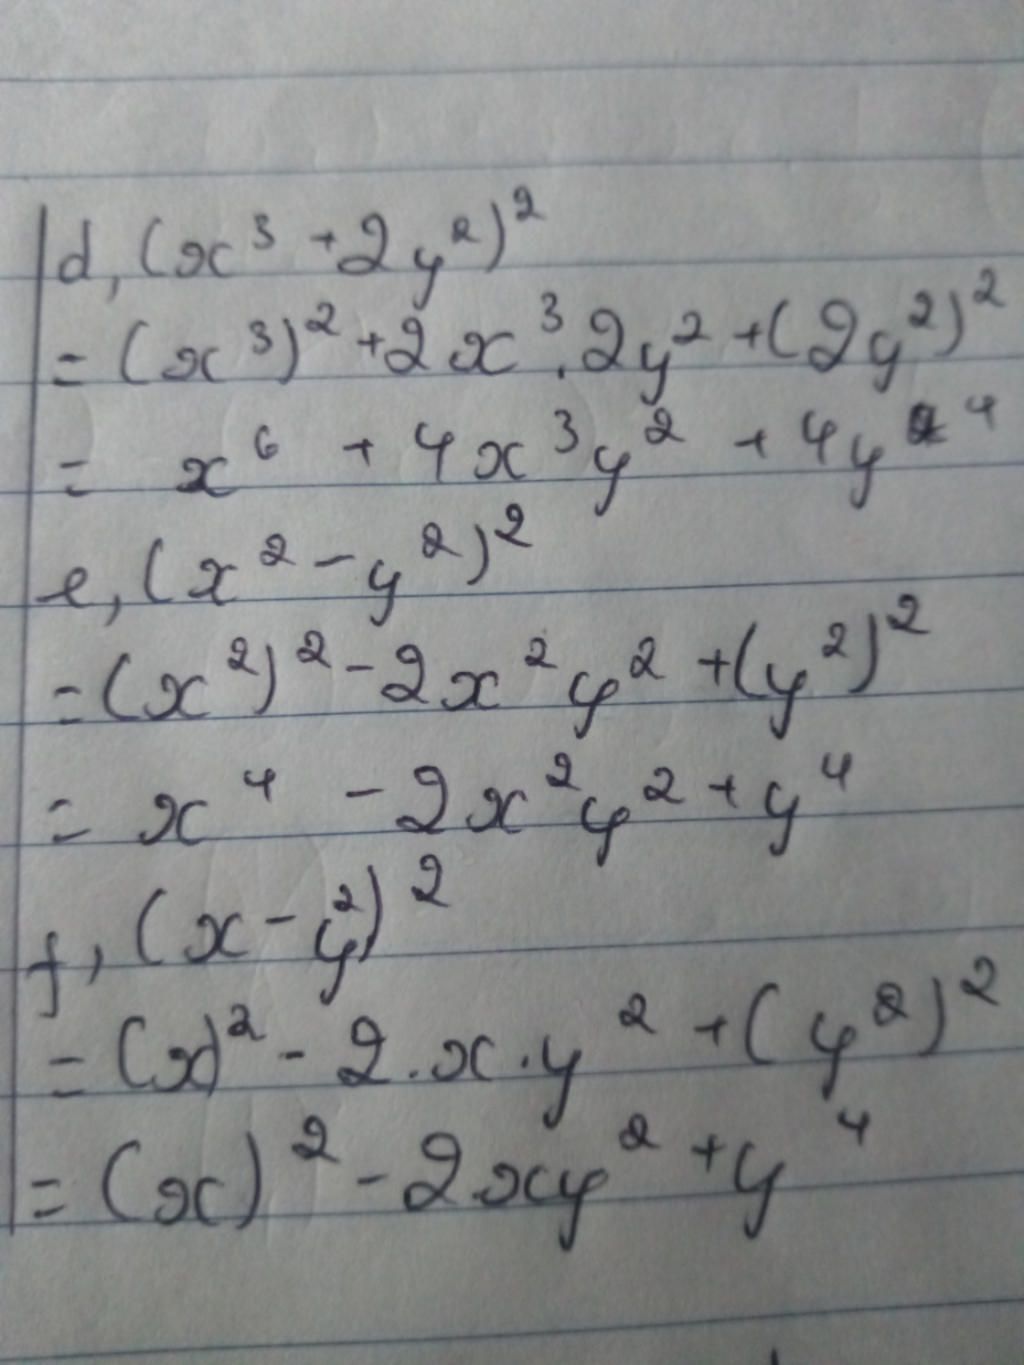 d, (x³ + 2y²)²
= (x³)² + 2x³ . 2y² + (2y²)²
= x⁶ + 4x³y² + 4y⁴
e, (x² - y²)²
= (x²)² - 2x²y² + (y²)²
= x⁴ - 2x²y² + y⁴
f, (x - y²)²
= (x)² - 2.x.y² + (y²)²
= (x)² - 2xy² + y⁴